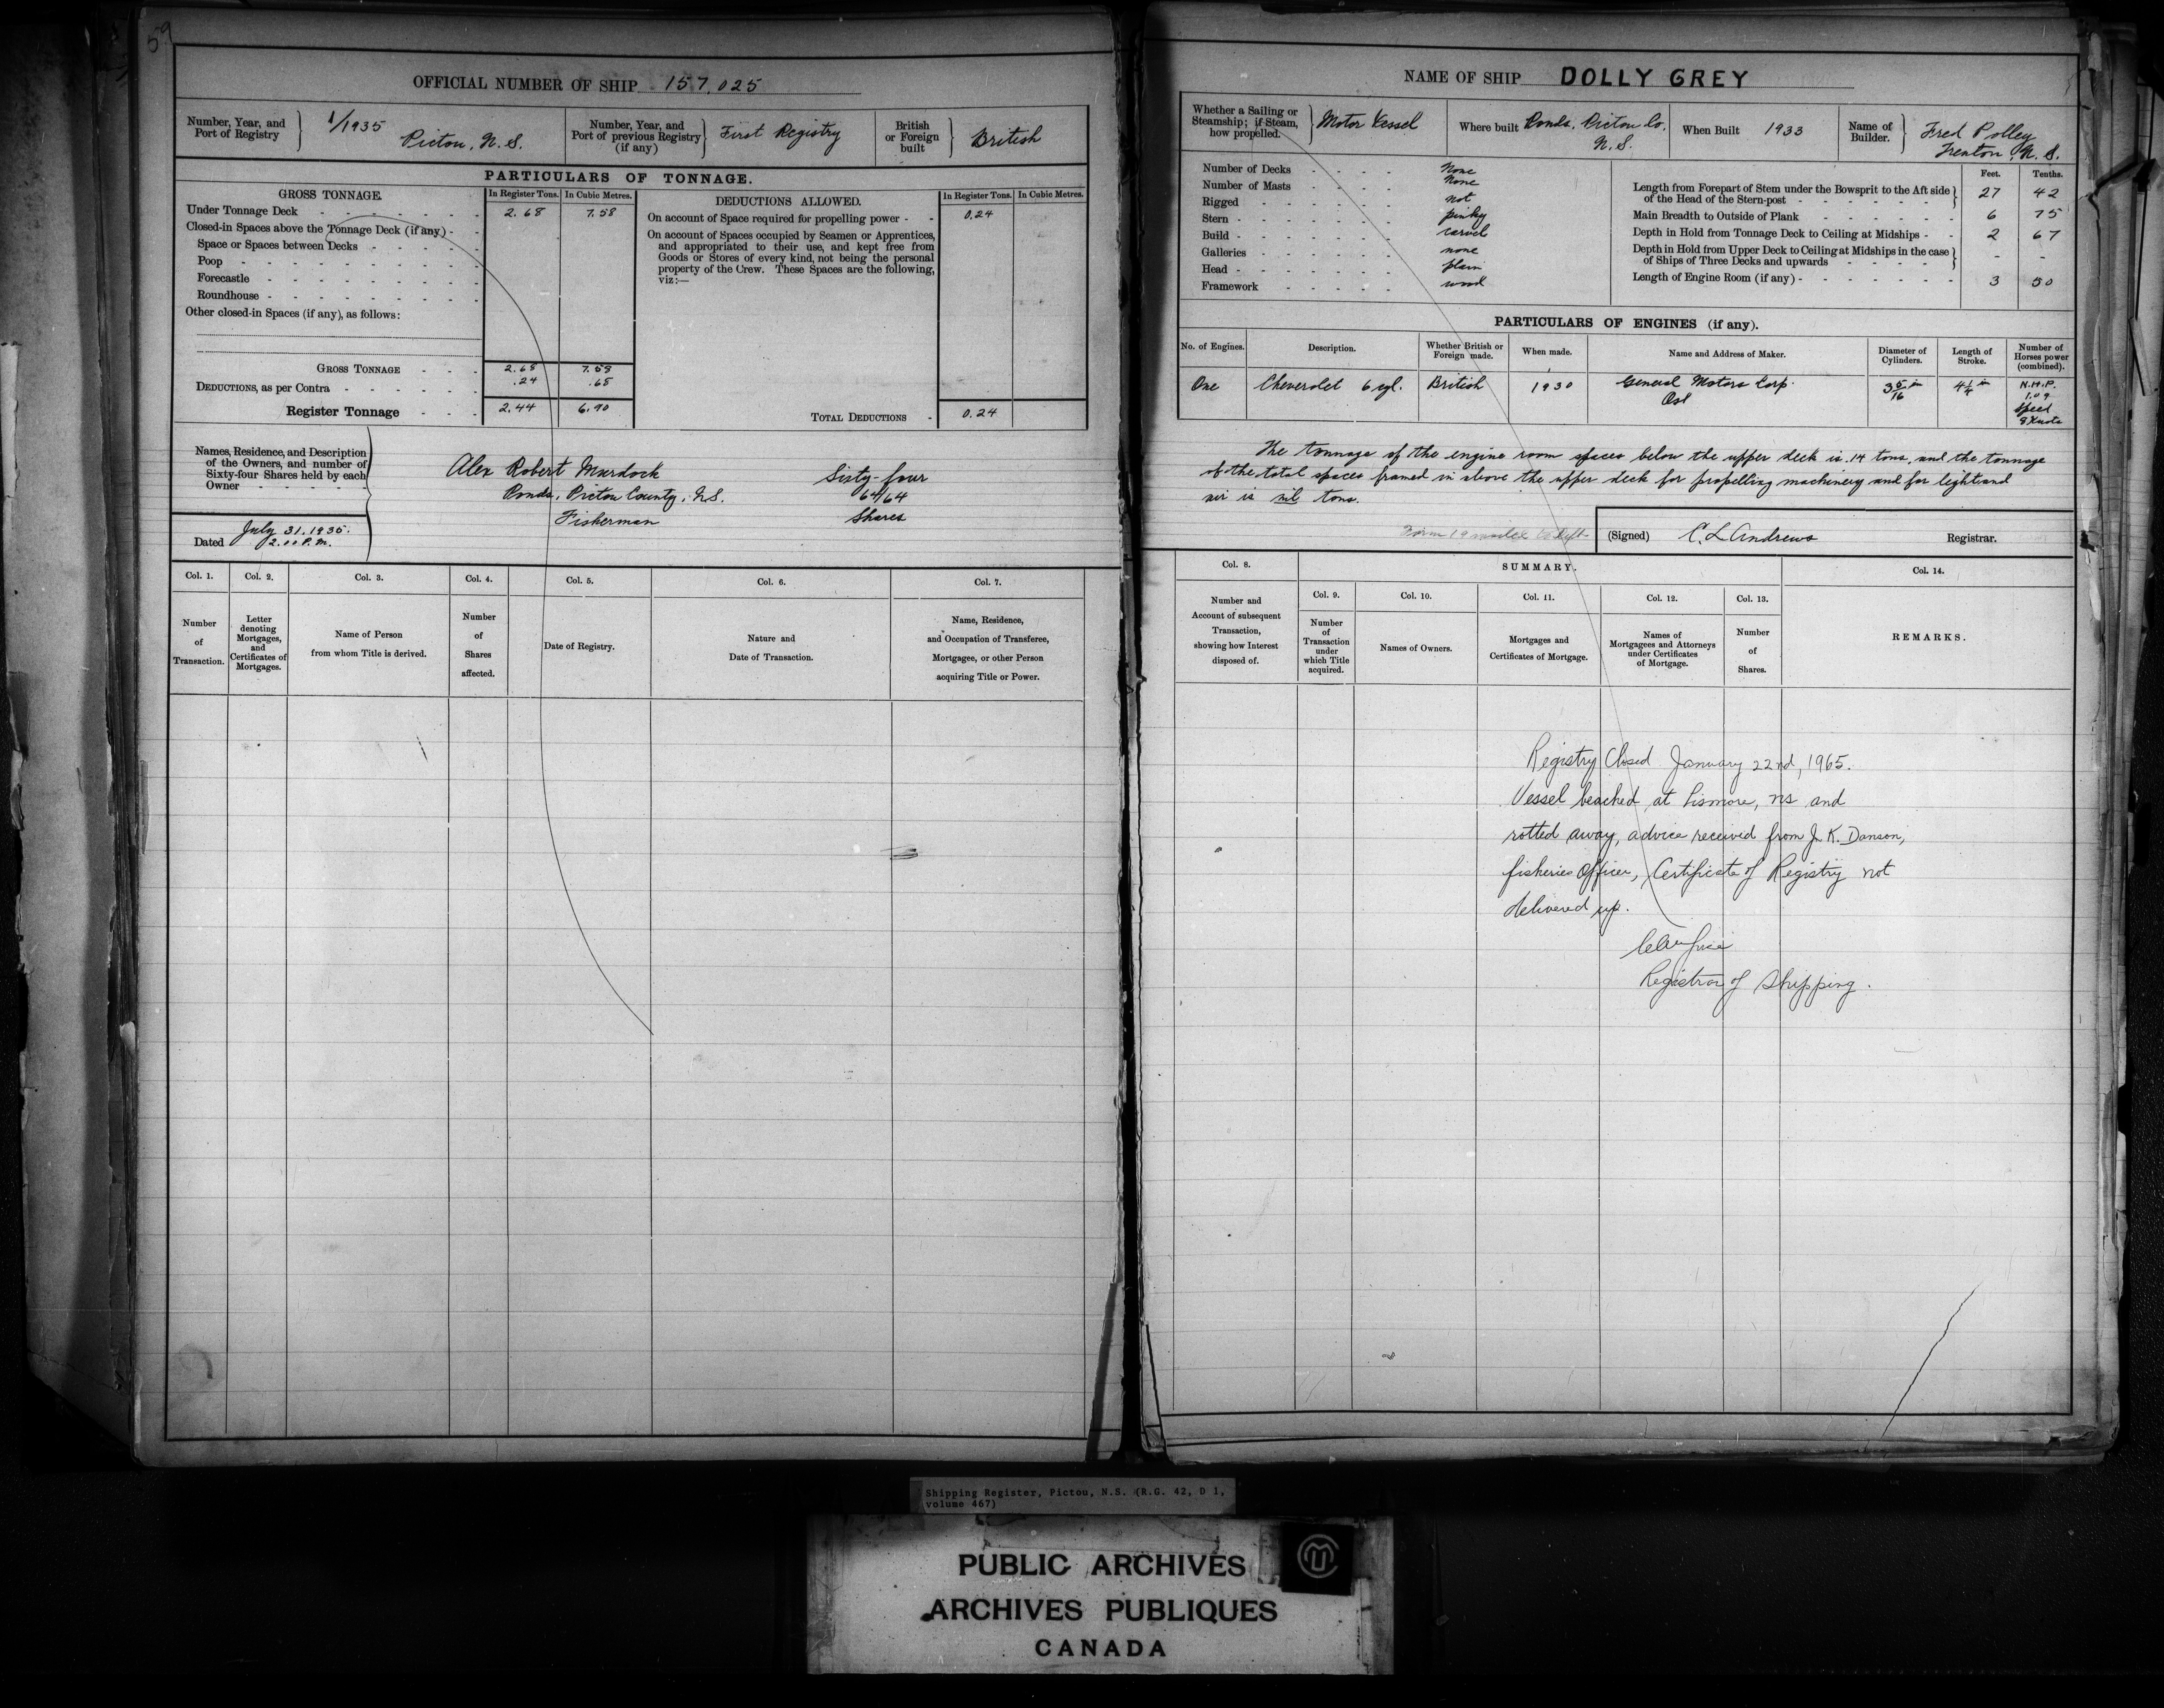 59
OFFICIAL NUMBER OF SHIP 157,025
Number, Year, and Port of Registry
1/1935
Pictou, N.S.
Number, Year, and Port of previous Registry (if any)
First Registry
British or Foreign built
British
PARTICULARS OF TONNAGE.
GROSS TONNAGE.
In Register Tons.
In Cubic Metres.
DEDUCTIONS ALLOWED.
In Register Tons.
In Cubic Metres.
Under Tonnage Deck 2.68 7.58
Closed-in Spaces above the Tonnage Deck (if any)
Space or Spaces between Decks
Poop
Forecastle
Roundhouse
Other closed-in Spaces (if any), as follows:
On account of Space required for propelling power 0.24
On account of Spaces occupied by Seamen or Apprentices,
and appropriated to their use, and kept free from
Goods or Stores of every kind, not being the personal
property of the Crew. These Spaces are the following,
viz:—
GROSS TONNAGE 2.68 7.58
DEDUCTIONS, as per Contra .24 .68
Register Tonnage 2.44 6.90
TOTAL DEDUCTIONS 0.24
Names, Residence, and Description
of the Owners, and number of
Sixty-four Shares held by each
Owner
Alex Robert Murdock
Ponds, Pictou County, N.S.
Fisherman
Sixty-four
64/64
Shares
Dated July 31, 1935.
2.00 P.M.
Col. 1.
Col. 2.
Col. 3.
Col. 4.
Col. 5.
Col. 6.
Col. 7.
Number
of
Transaction.
Letter
denoting
Mortgages,
and
Certificates of
Mortgages.
Name of Person
from whom Title is derived.
Number
of
Shares
affected.
Date of Registry.
Nature and
Date of Transaction.
Name, Residence,
and Occupation of Transferee,
Mortgagee, or other Person
acquiring Title or Power.
NAME OF SHIP DOLLY GREY
Whether a Sailing or
Steamship; if Steam,
how propelled.
Motor Vessel
Where built Ponds, Pictou Co.
N.S.
When Built 1933
Name of
Builder.
Fred Polley
Trenton, N.S.
Number of Decks None
Number of Masts None
Rigged not
Stern pinky
Build carvel
Galleries none
Head plain
Framework wood
Feet. Tenths.
Length from Forepart of Stem under the Bowsprit to the Aft side
of the Head of the Stern-post 27 42
Main Breadth to Outside of Plank 6 75
Depth in Hold from Tonnage Deck to Ceiling at Midships 2 67
Depth in Hold from Upper Deck to Ceiling at Midships in the case
of Ships of Three Decks and upwards - -
Length of Engine Room (if any) 3 50
PARTICULARS OF ENGINES (if any).
No. of Engines.
Description.
Whether British or
Foreign made.
When made.
Name and Address of Maker.
Diameter of
Cylinders.
Length of
Stroke.
Number of
Horses power
(combined).
One
Cheverolet 6 cyl.
British
1930
General Motors Corp.
Ont
3 5/16 in
4 1/4 in
N.H.P.
1.09
Speed
8 Knots
The tonnage of the engine room spaces below the upper deck is .14 tons, and the tonnage
of the total spaces framed in above the upper deck for propelling machinery and for light and
air is nil tons.
(Signed) C. L. Andrews Registrar.
Col. 8.
SUMMARY.
Col. 14.
Number and
Account of subsequent
Transaction,
showing how Interest
disposed of.
Col. 9.
Col. 10.
Col. 11.
Col. 12.
Col. 13.
Number
of
Transaction
under
which Title
acquired.
Names of Owners.
Mortgages and
Certificates of Mortgage.
Names of
Mortgagees and Attorneys
under Certificates
of Mortgage.
Number
of
Shares.
REMARKS.
Registry Closed January 22nd, 1965.
Vessel beached at Lismore, NS and
rotted away, advice received from J. K. Danson,
fisheries Officer, Certificate of Registry not
delivered up.
Registrar of Shipping.
Shipping Register, Pictou, N.S. (R.G. 42, D 1,
volume 467)
PUBLIC ARCHIVES
ARCHIVES PUBLIQUES
CANADA